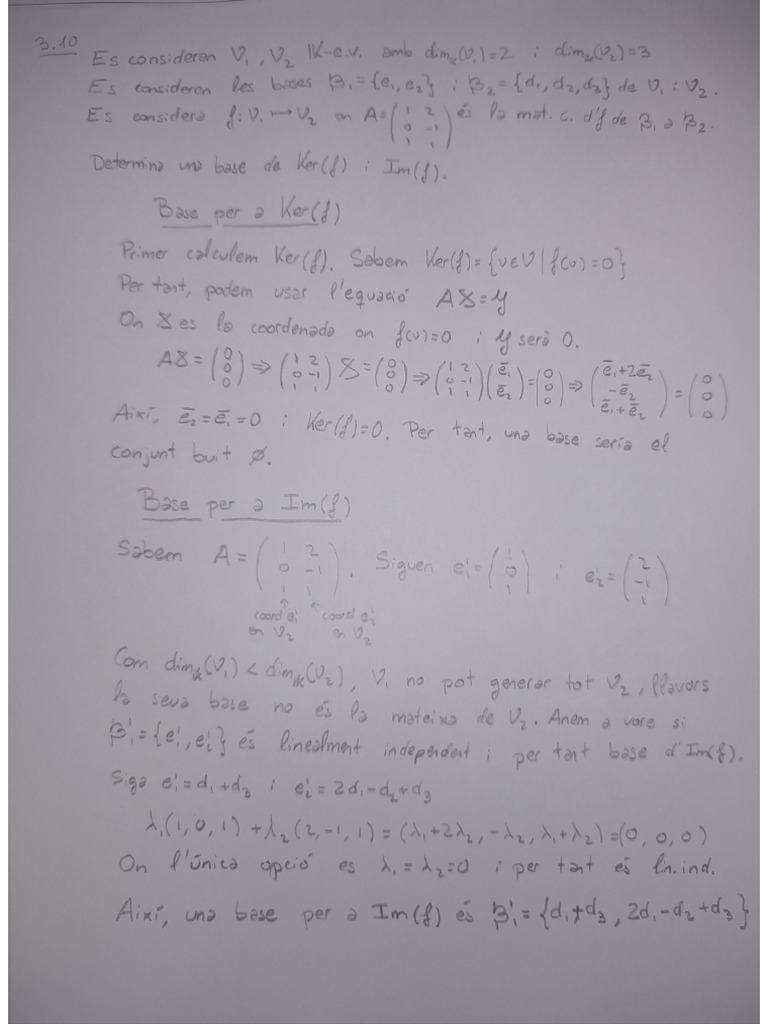 3.10 Es consideren V₁, V₂ K-e.v. amb dim_K(V₁)=2 i dim_K(V₂)=3
Es consideren les bases B₁={e₁,e₂} i B₂={d₁,d₂,d₃} de V₁ i V₂.
Es considera f:V₁→V₂ on A=(1 2; 0 -1; 1 1) és la mat. c. d'f de B₁ a B₂.
Determina una base de Ker(f) i Im(f).
Base per a Ker(f)
Primer calculem Ker(f). Sabem Ker(f)={v∈V|f(v)=0}
Per tant, podem usar l'equació AX=Y
On X es la coordenada on f(v)=0 i Y serà 0.
AX=(0; 0; 0) ⇒ (1 2; 0 -1; 1 1) X=(0; 0; 0) ⇒ (1 2; 0 -1; 1 1)(ē₁; ē₂)=(0; 0; 0) ⇒ (ē₁+2ē₂; -ē₂; ē₁+ē₂)=(0; 0; 0)
Així, ē₂=ē₁=0 i Ker(f)=0. Per tant, una base seria el
conjunt buit ∅.
Base per a Im(f)
Sabem A=(1 2; 0 -1; 1 1). Siguen e₁'=(1; 0; 1) i e₂'=(2; -1; 1)
coord e₁' coord e₂'
en V₂ en V₂
Com dim_K(V₁)<dim_K(V₂), V₁ no pot generar tot V₂, llavors
la seva base no és la mateixa de V₂. Anem a vore si
B₁'={e₁',e₂'} és linealment independent i per tant base d'Im(f).
Siga e₁'=d₁+d₃ i e₂'=2d₁-d₂+d₃
λ₁(1,0,1)+λ₂(2,-1,1)=(λ₁+2λ₂,-λ₂,λ₁+λ₂)=(0,0,0)
On l'única opció es λ₁=λ₂=0 i per tant és ln.ind.
Així, una base per a Im(f) és B₁'={d₁+d₃, 2d₁-d₂+d₃}